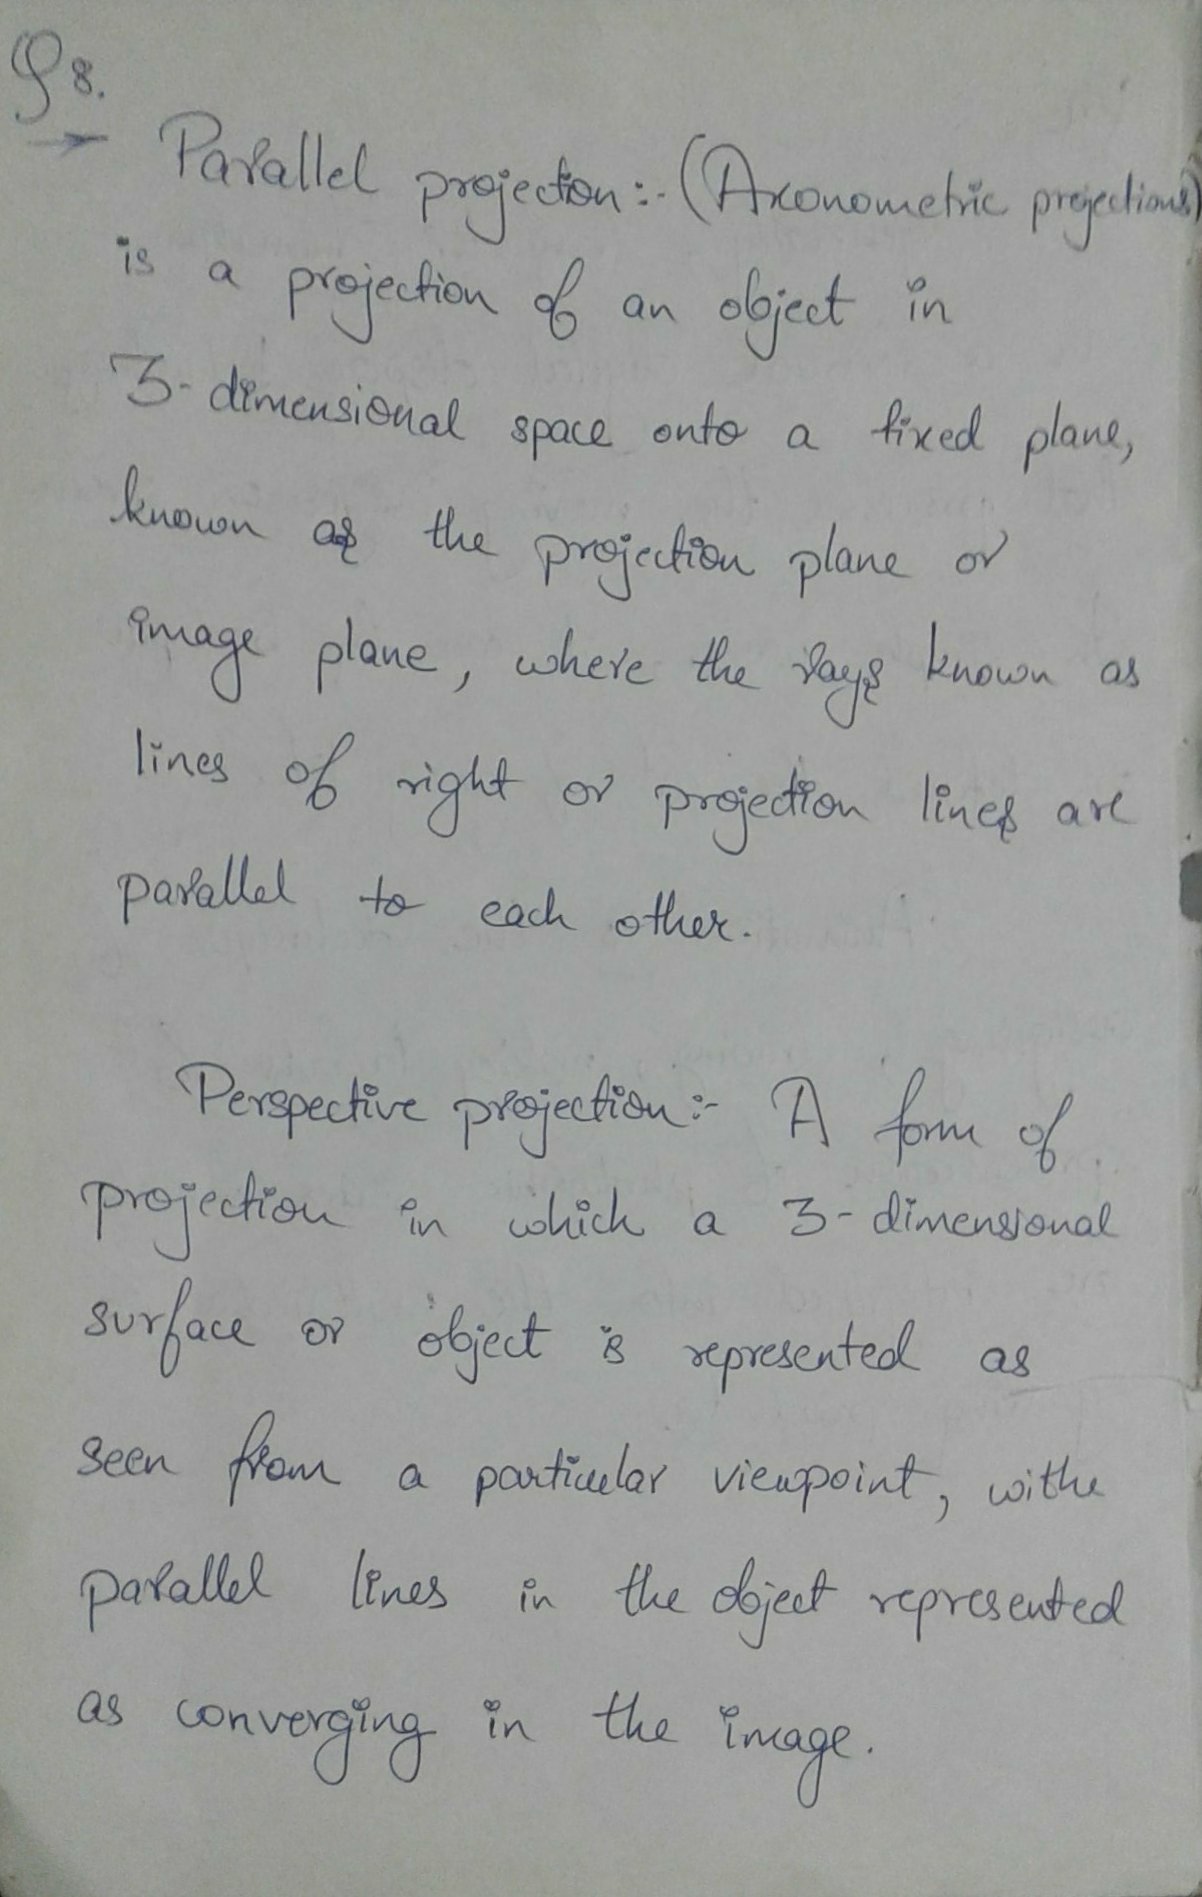 Q8.
→ Parallel projection:- (Axonometric projections)
is a projection of an object in
3-dimensional space onto a fixed plane,
known as the projection plane or
image plane, where the rays known as
lines of right or projection lines are
parallel to each other.
Perspective projection:- A form of
projection in which a 3-dimensional
surface or object is represented as
seen from a particular viewpoint, withe
parallel lines in the object represented
as converging in the image.